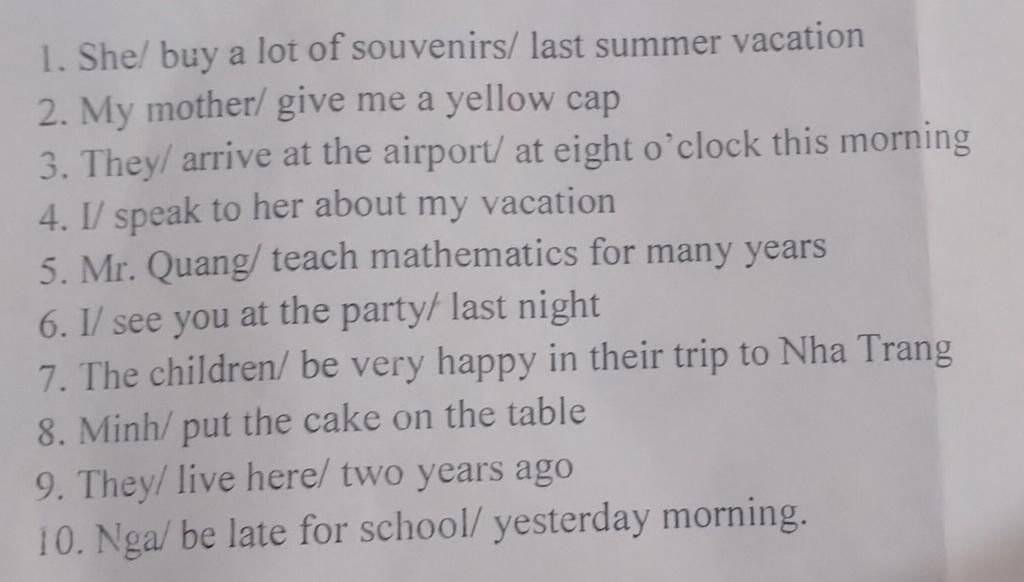 1. She/ buy a lot of souvenirs/ last summer vacation
2. My mother/ give me a yellow cap
3. They/ arrive at the airport/ at eight o’clock this morning
4. I/ speak to her about my vacation
5. Mr. Quang/ teach mathematics for many years
6. I/ see you at the party/ last night
7. The children/ be very happy in their trip to Nha Trang
8. Minh/ put the cake on the table
9. They/ live here/ two years ago
10. Nga/ be late for school/ yesterday morning.